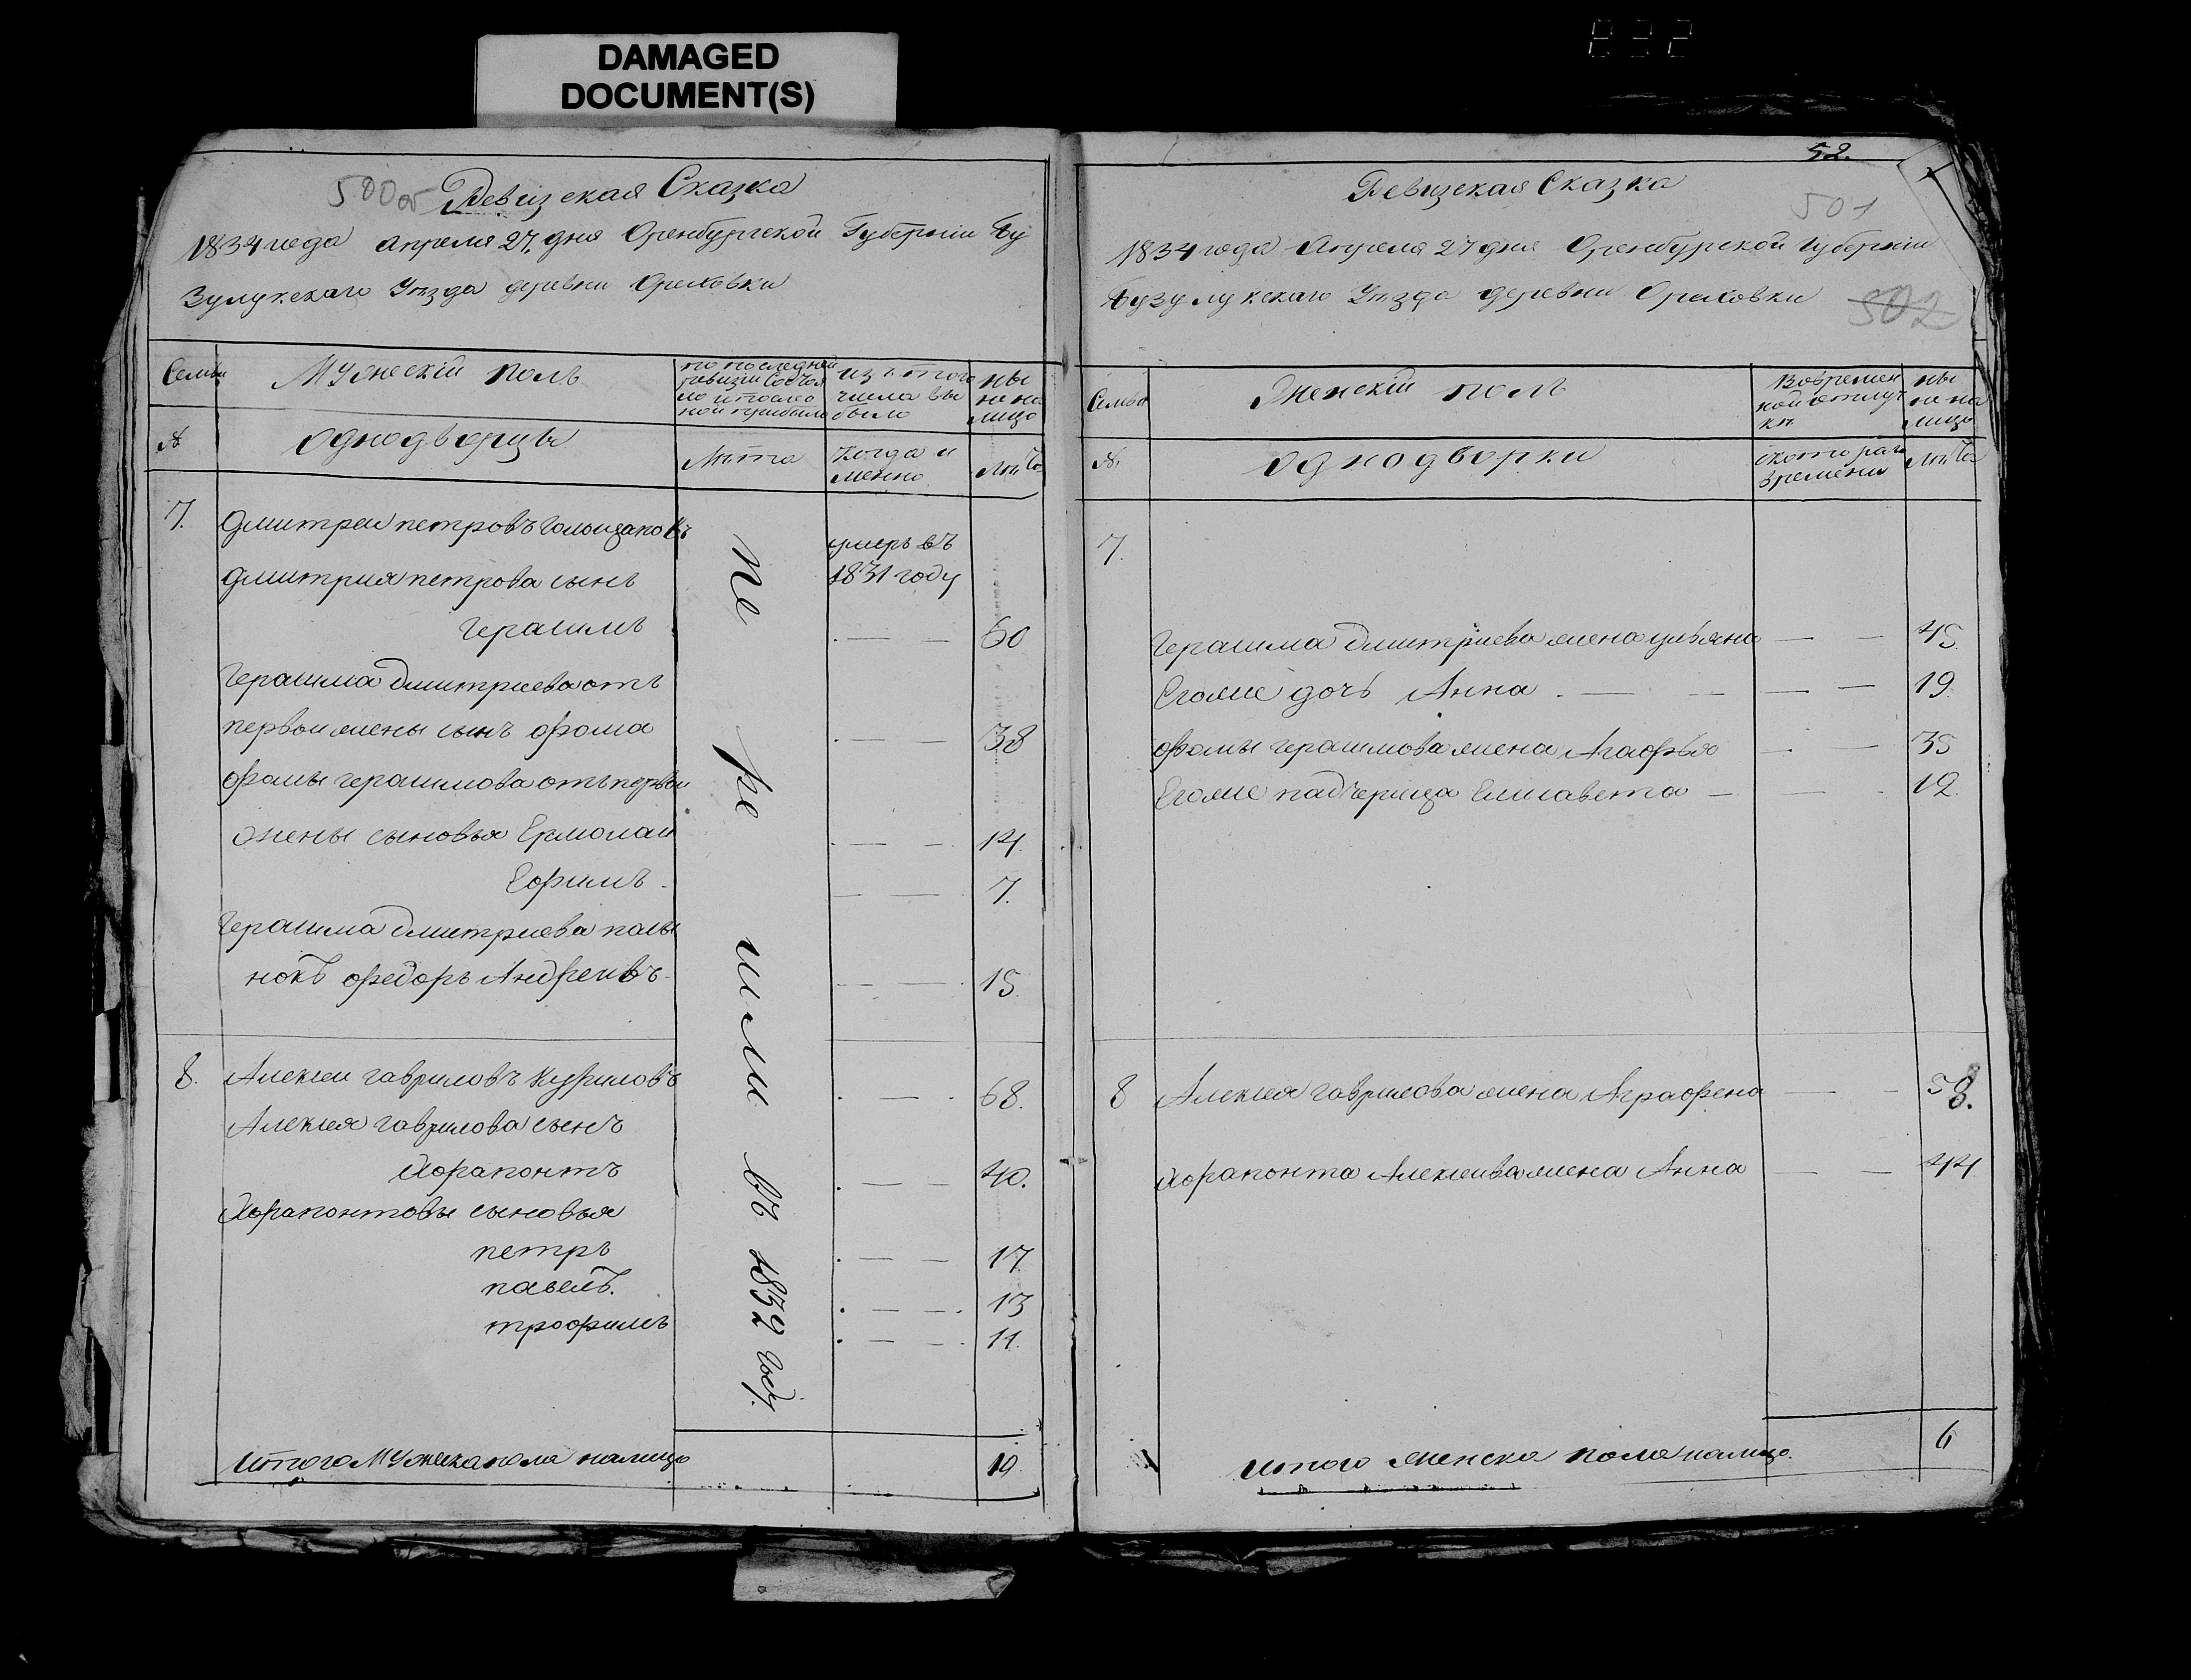 DAMAGED
DOCUMENT(S)
500об
Ревизская Сказка
1834 года апреля 27 дня Оренбургской Губернии Бу
зулукскаго Уезда деревни Ореховки
Семьи
Мужескій полъ
по последней
ревизіи состоя
ло и после
ной прибыло
из того
числа вы
было
ны
не на
лицо
№
однодворцы
Лѣта
Когда и
менно
Лѣта
7.
Дмитреи петровъ
умеръ въ
1831 году
Дмитрия петрова сынъ
Герасимъ
60
Герасима Дмитриева отъ
первои жены сынъ Фома
38
Фомы Герасимова отъ первои
жены сыновья Ермолаи
14.
Ефимъ
7.
Герасима Дмитриева пасы
нокъ Федоръ Андреивъ
15.
8.
Алексеи Гавриловъ
68.
Алексея Гаврилова сынъ
Хорапонтъ
40.
Хорапонтовы сыновья
петръ
17
павелъ.
13
трофимъ
11.
въ 1832 году.
итого Мужеска пола налицо
10
52.
Ревизская Сказка
501
1834 года Апреля 27 дня Оренбурской Губерніи
Бузулукскаго Уезда деревни Ореховки
502
Семьи
Женскій полъ
Вовремен
ной отлуч
ки
ны
не на
лицо
№
однодворки
с котораго
времени
Лѣта
7.
Герасима Дмитриева жена ульяна
45.
Егоже дочь Анна
19.
Фомы Герасимова жена Агафья
35
Егоже падчерица Елисавета
12.
8
Алексея Гаврилова жена Аграфена
58.
Хорапонта Алексеива жена Анна
44
итого женска пола налицо.
6